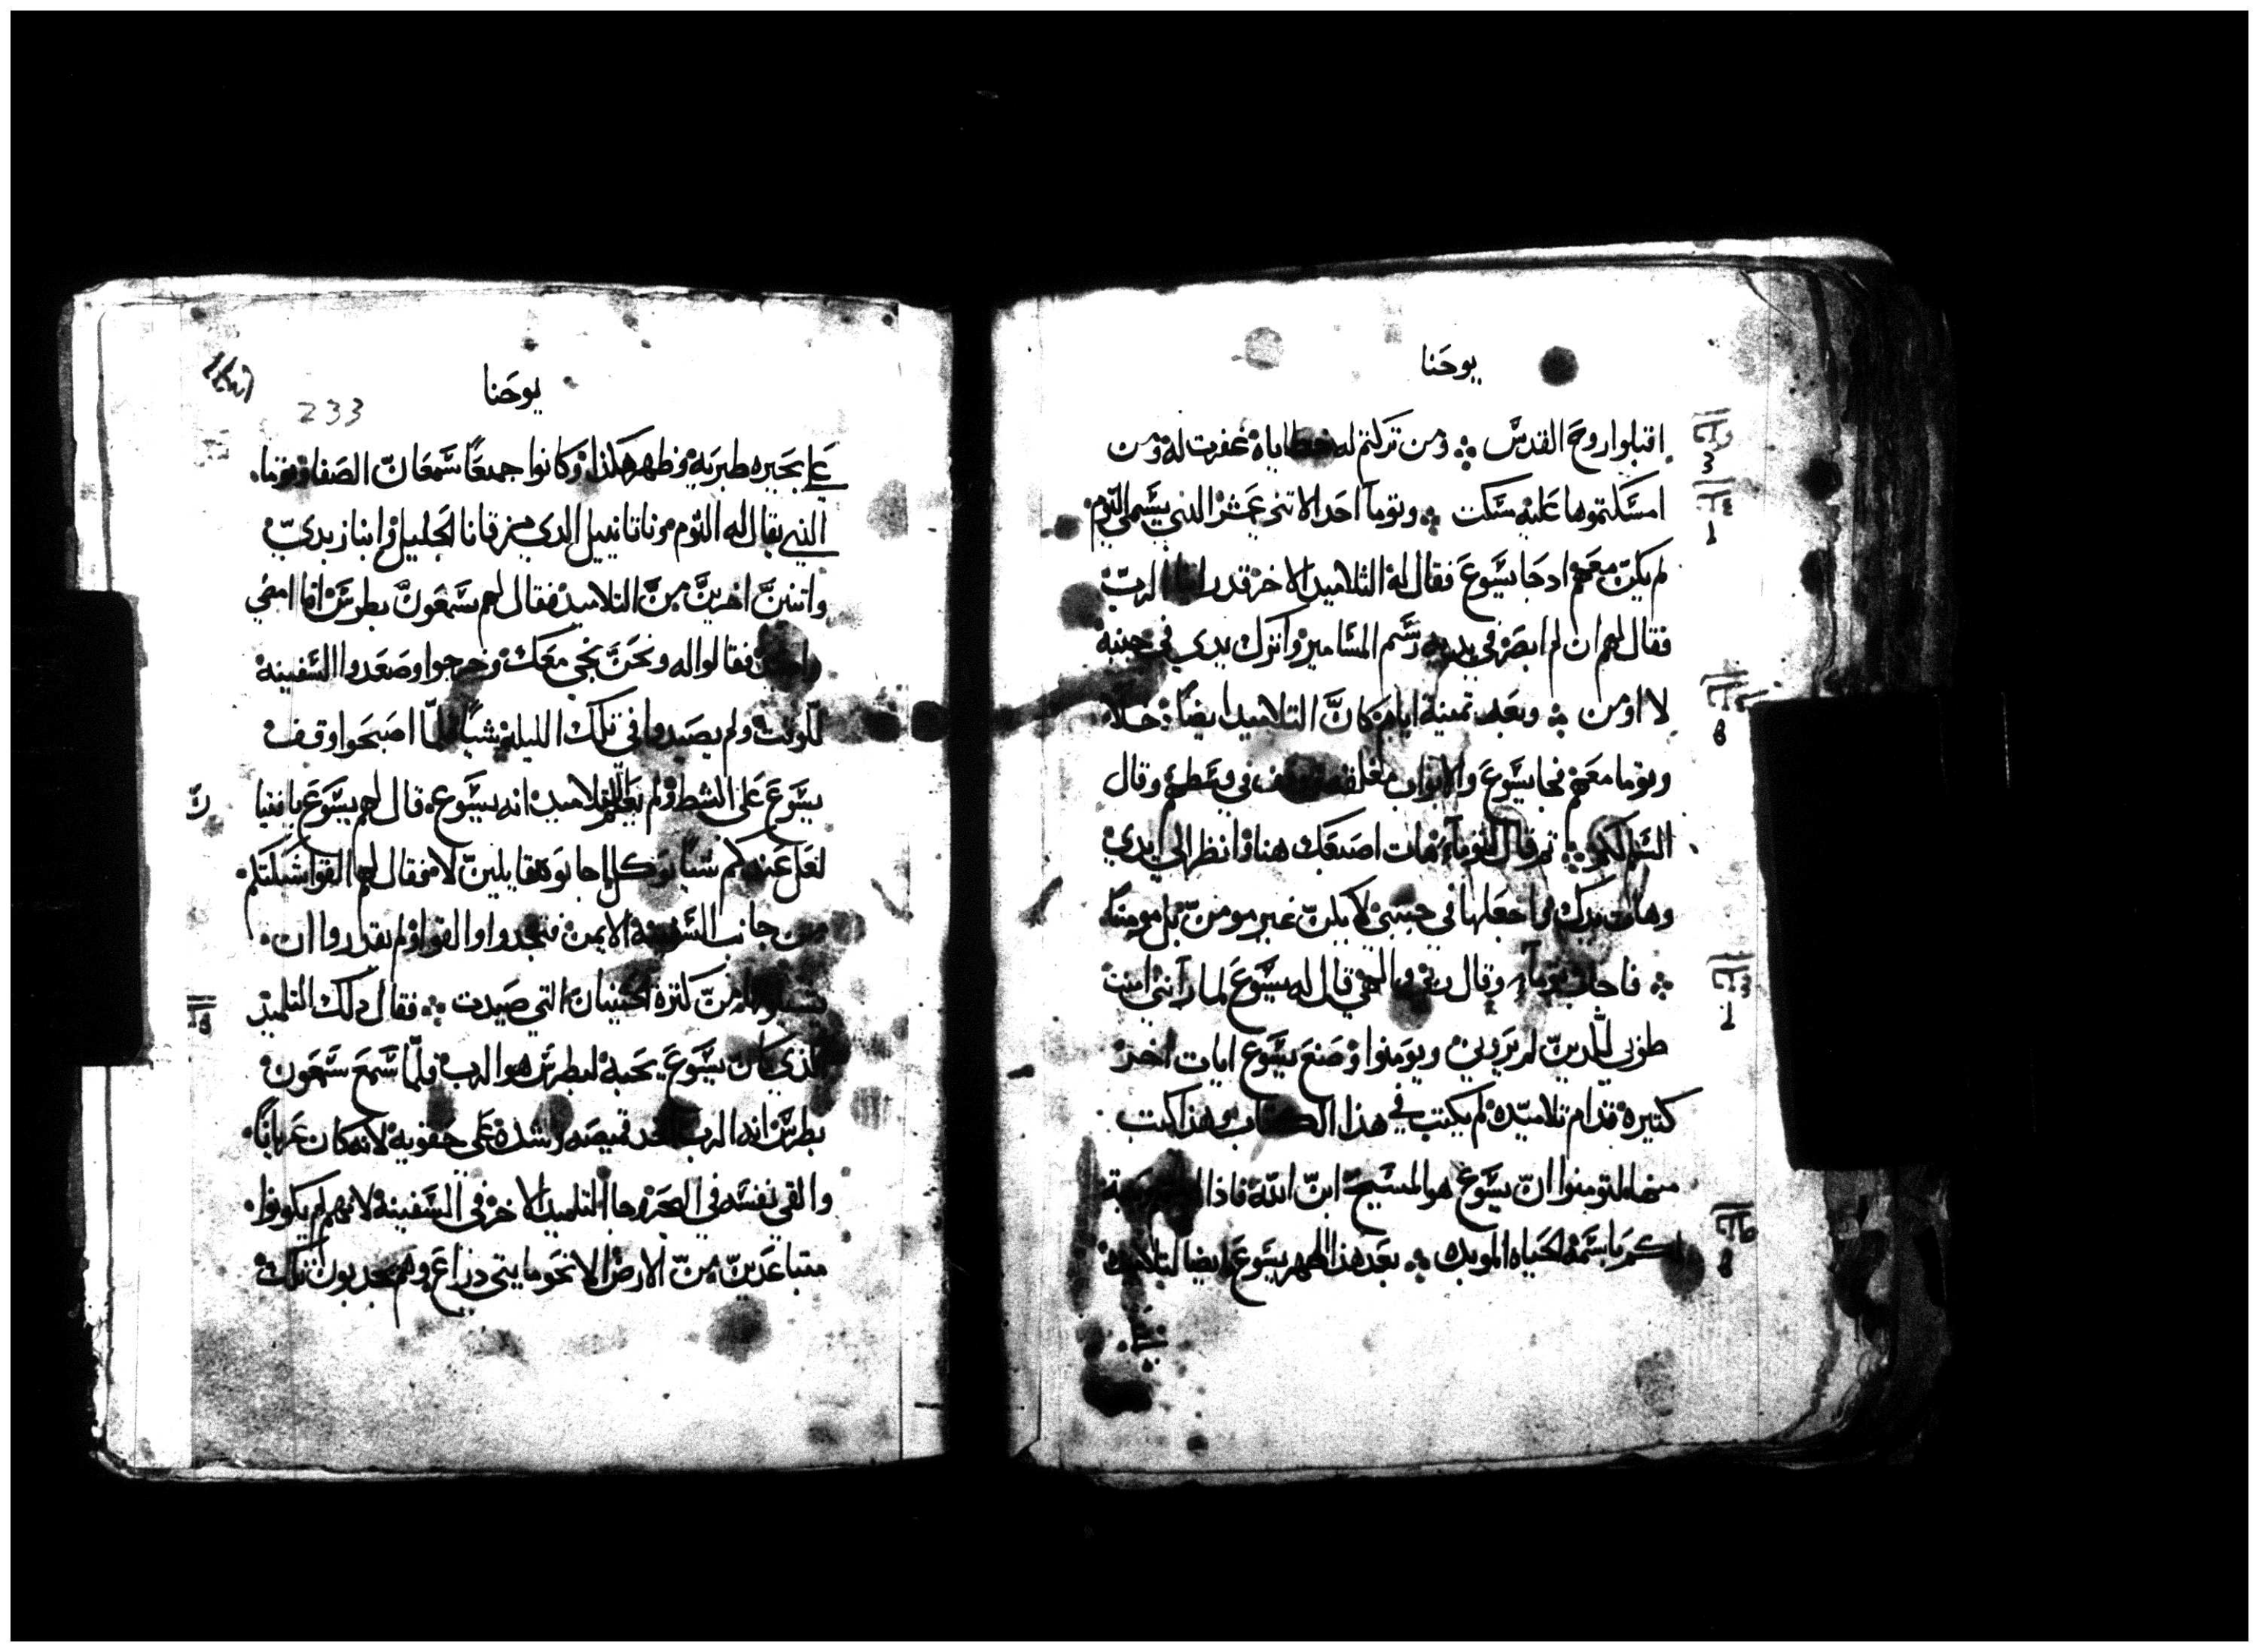 يوحنا
اقبلوا روح القدس ومن تركتم له خطاياه غفرت له ومن
امسكتموها عليه مسكت وتوما احد الاتني عشر الذي يسمى التوم
لم يكن معهم ادجا يسوع فقال له التلاميد الاخر قد راينا الرب
فقال لهم ان لم ابصر في يديه رسم المسامير واترك يدي في جنبه
لا اومن وبعد تمنية ايام كان التلاميد ايضا دخلا
وتوما معهم فجا يسوع والابواب مغلقه في وسطهم وقال
السلام لكم تم قال لتوما هات اصبعك هنا وانظر الي يدي
وهات يدك واجعلها في جنبي لا يكن غير مومن بل مومنا
فاجاب توما وقال ربي والهي قال له يسوع لما رأتني امنت
طوبى للدين لم يروني ويومنوا وصنع يسوع ايات اخر
كتيرة قدام تلاميده لم يكتب في هذا الكتاب وهذا كتب
منها لتومنوا ان يسوع هو المسيح ابن الله فاذا
لكم باسمه الحياه الموبده بعد هذا اظهر يسوع ايضا لتلاميده
يوحنا
233
على بحيره طبريه وظهر هكذا وكانوا جمعا سمعان الصفا وتوما
الذي يقال له التوم وناتانييل الدي من قانا الجليل وابنا زبدي
واتنين اخرين من التلاميد فقال لهم سمعون بطرس انا امضي
فقالوا له ونحن نجي معك وخرجوا وصعدوا السفينه
للوقت ولم يصيدوا في تلك الليله شيا فلما اصبحوا وقف
يسوع على الشط ولم يعلم التلاميد انه يسوع قال لهم يسوع يا فتيا
لعل عندكم شيا يوكل اجابوه قايلين لا فقال لهم القوا شبكتكم
من جانب السفينه الايمن فتجدوا والقوا ولم يقدروا ان
من كترة الحيتان التي صيدت فقال دلك التلميد
الذي كان يسوع يحبه لبطرس هو الرب فلما سمع سمعون
بطرس انه الرب اخد قميصه وشده على حقويه لانه كان عريانا
والقي نفسه في البحر وجا التلميد الاخر في السفينه لانهم لم يكونوا
متباعدين من الارض الا نحو مايتي دراع وهم يجدبون تلك